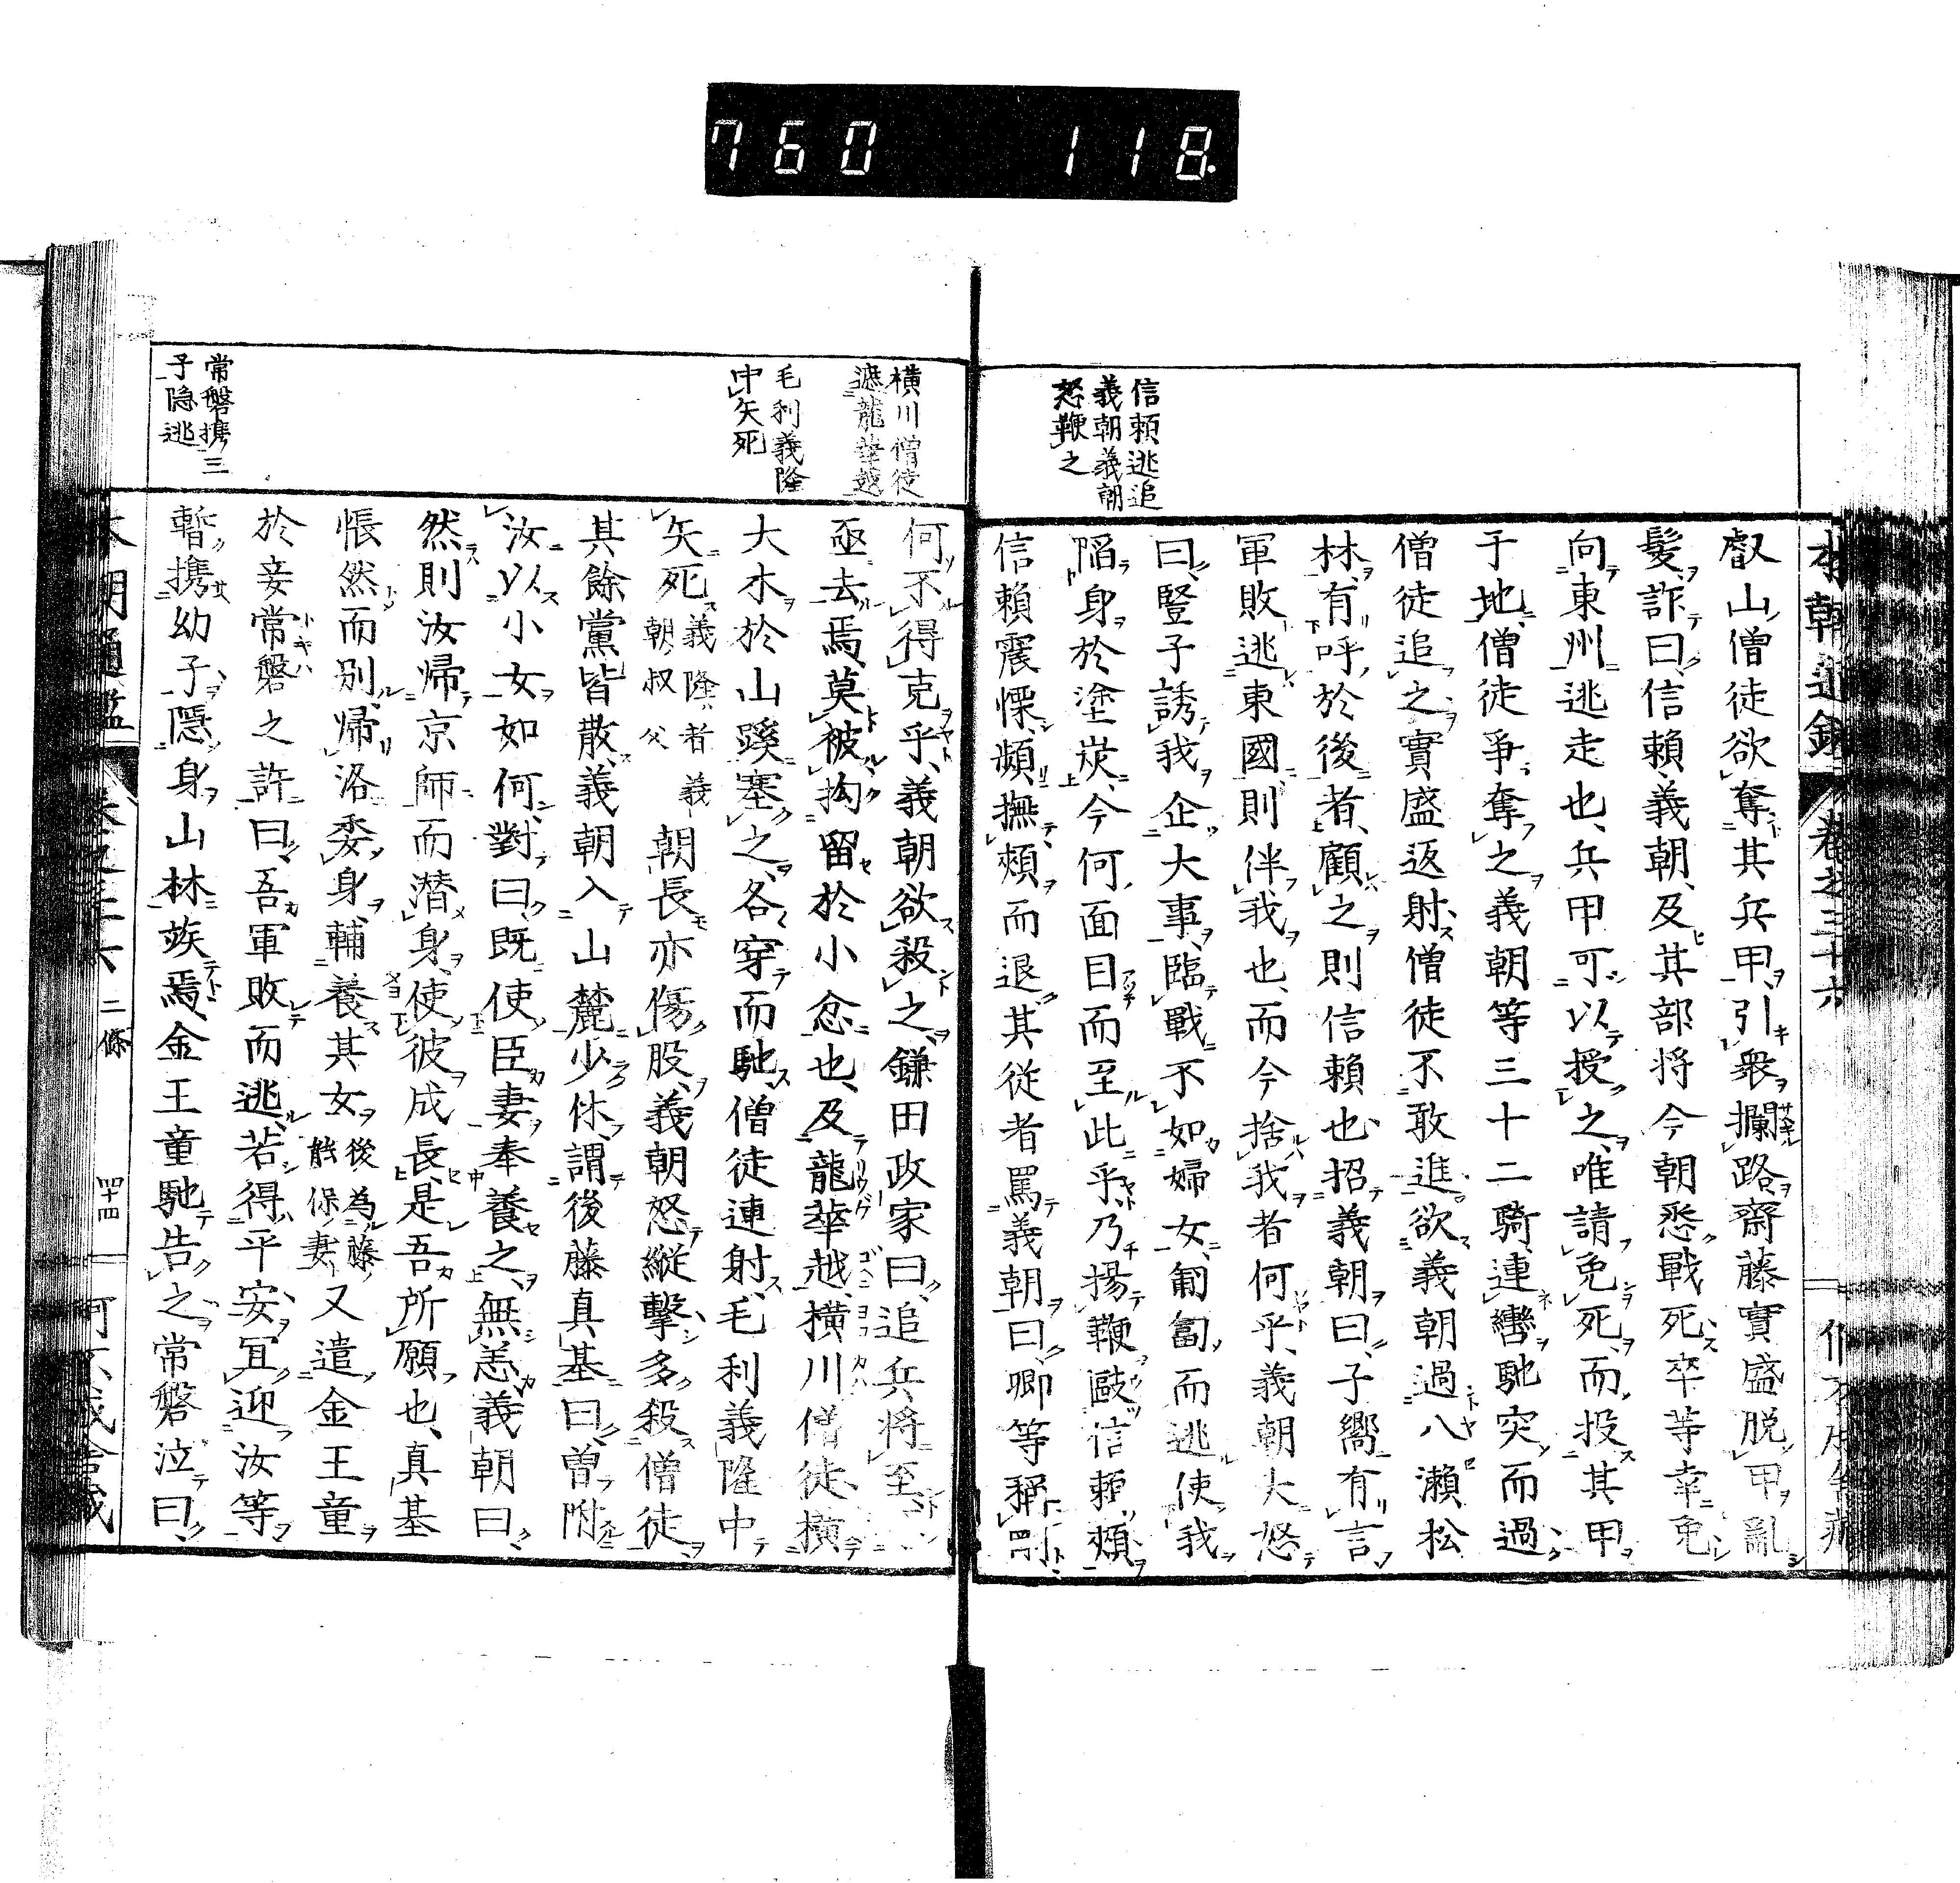 760 118.
信頼逃追
義朝義朝
怒鞭之
叡山僧徒欲奪其兵甲、引衆攔路齋藤實盛脱甲亂
髮、詐曰、信賴、義朝、及其部将今朝悉戰死、卒等幸免
向東州逃走也、兵甲可以授之、唯請免死、而投其甲
于地、僧徒爭奪之義朝等三十二騎、連轡馳突而過
僧徒追之、實盛返射僧徒不敢進、欲義朝過八瀬松
林、有呼於後者、顧之則信賴也、招義朝曰、子嚮有言
軍敗逃東國、則伴我也、而今捨我者何乎、義朝大怒
曰、豎子誘我企大事、臨戰不如婦女、匍匐而逃、使我
陷身於塗炭、今何面目而至此乎、乃揚鞭毆信賴頰、
信賴震慄、頻撫頰而退其從者罵義朝曰、卿等稱
橫川僧徒
遮龍華越
毛利義隆
中矢死
常磐携三
子隱逃
何不得克乎、義朝欲殺之、鎌田政家曰、追兵将至、
亟去焉、莫被拘留於小忿也、及龍華越、橫川僧徒、橫
大木於山蹊塞之、各穿而馳、僧徒連射、毛利義隆中
矢死義隆者義朝叔父朝長亦傷股、義朝怒縱擊多殺僧徒
其餘黨皆散、義朝入山麓少休、謂後藤真基曰、曽附
汝以小女如何、對曰、既使臣妻奉養之、無恙、義朝曰、
然則汝歸京師而潜身、使彼成長、是吾所願也、真基
悵然而别、歸洛委身、輔養其女後為藤能保妻又遣金王童
於妾常磐之許曰、吾軍敗而逃、若得平安、冝迎汝等
暫携幼子隱身山林竢焉、金王童馳告之常磐泣曰、
二條
四十四